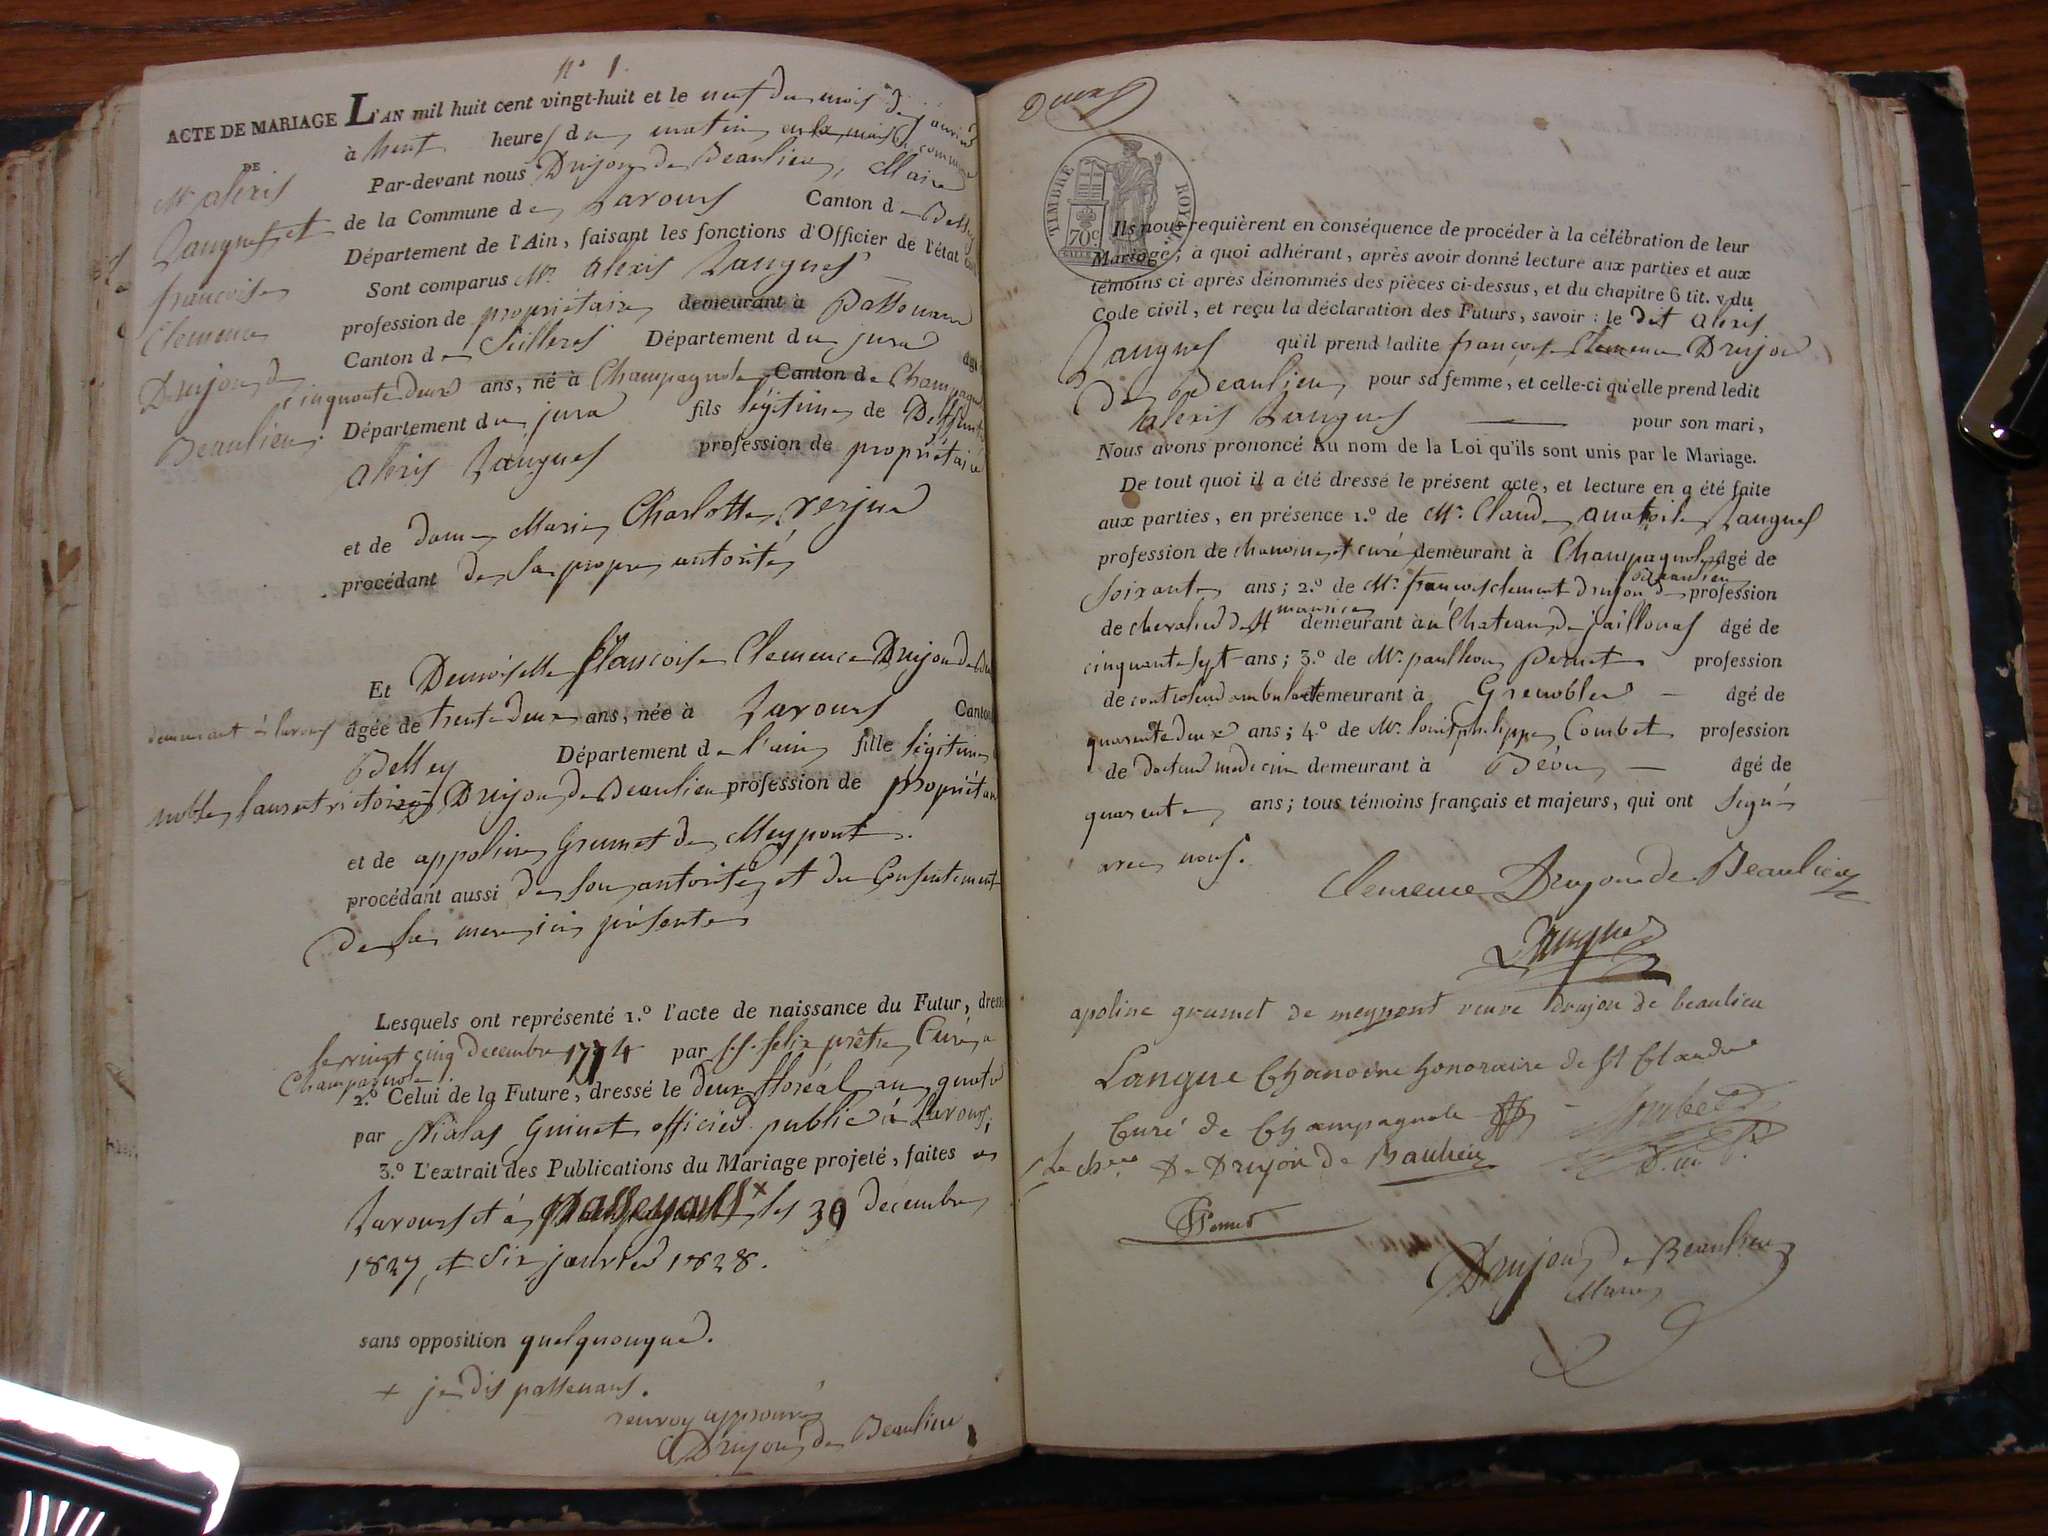 N° 1.
ACTE DE MARIAGE
DE
Mr alexis
Langues et
francoise
Clemence
Drujon de
Beaulieu.
L'AN mil huit cent vingt-huit et le neuf du mois de janvier
à huit heures du matin en la maison commune
Par-devant nous Drujon de Beaulieu, Maire
de la Commune de Lavours Canton de Belley
Département de l'Ain, faisant les fonctions d'Officier de l'état civil
Sont comparus Mr. alexis Langues
profession de propriétaire demeurant à Passenans
Canton de Sellieres Département du jura âgé
cinquante deux ans, né à Champagnole Canton de Champagnole
Département du jura fils légitime de Deffunt
alexis Langues profession de propriétaire
et de dame Marie Charlotte verjus
procédant de sa propre autorité
Et Demoiselle françoise Clemence Drujon de Beau
demeurant à lavours âgée de trente deux ans, née à Lavours Canton
Belley Département de l'ain fille légitime
noble laurent victoire Drujon de Beaulieu profession de propriétaire
et de appoline Grumet de Meypont.
procédant aussi de son autorité et du Consentement
de sa mere ici présente
Lesquels ont représenté 1.° l'acte de naissance du Futur, dressé
le vingt cinq decembre 1774 par felix prêtre Curé a
Champagnole.
2.° Celui de la Future, dressé le deux floréal an quatre
par Nicolas Guinet officier public à Lavours,
3.° L'extrait des Publications du Mariage projeté, faites a
Lavours et à passenans x les 30 decembre
1827, et Six janvier 1828.
sans opposition quelquonque.
+ je dis passenans.
renvoy approuvé
Drujon de Beaulieu
TIMBRE ROYAL
70c
Ils nous requièrent en conséquence de procéder à la célébration de leur
Mariage; à quoi adhérant, après avoir donné lecture aux parties et aux
témoins ci-après dénommés des pièces ci-dessus, et du chapitre 6 tit. v du
Code civil, et reçu la déclaration des Futurs, savoir : le dit alexis
Langues qu'il prend ladite françoise Clemence Drujon
de Beaulieu pour sa femme, et celle-ci qu'elle prend ledit
alexis Langues — pour son mari,
Nous avons prononcé au nom de la Loi qu'ils sont unis par le Mariage.
De tout quoi il a été dressé le présent acte, et lecture en a été faite
aux parties, en présence 1.° de Mr. Claude anatoile Langues
profession de chanoine et curé demeurant à Champagnole âgé de
soixante ans; 2.° de Mr. francois clement drujon de beaulieu profession
de chevalier de St maurice demeurant au Chateau de jaillonas âgé de
cinquante sept ans; 3.° de Mr. paul leon Pernet profession
de controleur ambulant demeurant à Grenoble — âgé de
quarente deux ans; 4.° de Mr. louis philippe Combet profession
de docteur medecin demeurant à Béon — âgé de
quarente ans; tous témoins français et majeurs, qui ont signé
avec nous.
Clemence Drujon de Beaulieu
Langues
apoline grumet de meypont veuve drujon de beaulieu
Langue Chanoine honoraire de St Claude
Curé de Champagnole
Combet
d. m.
Le chver De Drujon de Baulieu
Pernet
Drujon de Beaulieu
Maire